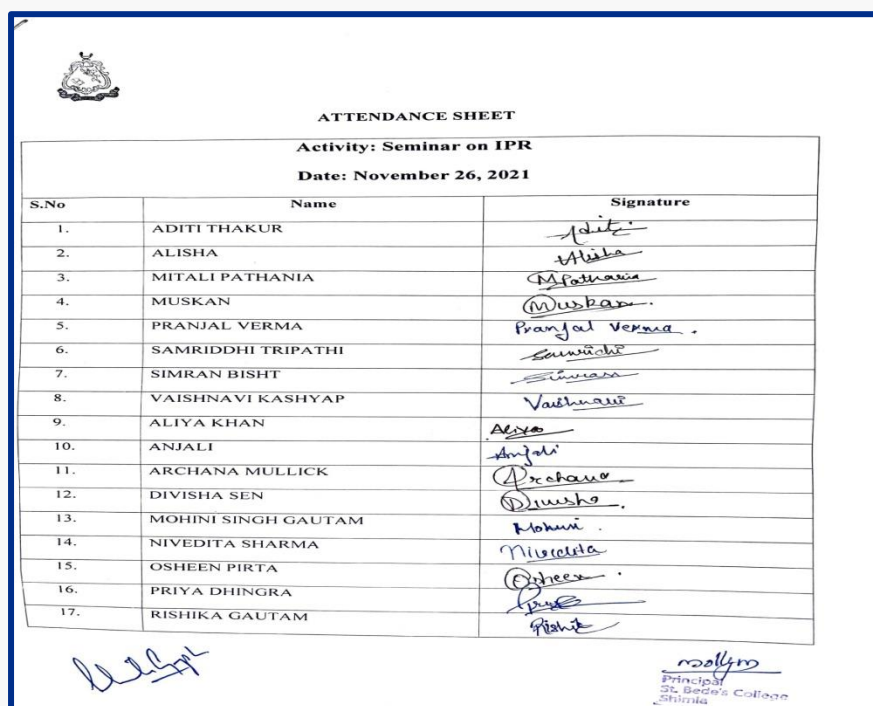 ATTENDANCE SHEET
Activity: Seminar on IPR
Date: November 26, 2021
S.No Name Signature
1. ADITI THAKUR Aditi
2. ALISHA Alisha
3. MITALI PATHANIA MPathania
4. MUSKAN Muskan.
5. PRANJAL VERMA Pranjal Verma.
6. SAMRIDDHI TRIPATHI
7. SIMRAN BISHT Simran
8. VAISHNAVI KASHYAP Vaishnavi
9. ALIYA KHAN Aliya
10. ANJALI Anjali
11. ARCHANA MULLICK Archana
12. DIVISHA SEN Divisha.
13. MOHINI SINGH GAUTAM Mohini.
14. NIVEDITA SHARMA Nivedita
15. OSHEEN PIRTA Osheen.
16. PRIYA DHINGRA Priya
17. RISHIKA GAUTAM
Principal
St. Bede's College
Shimla